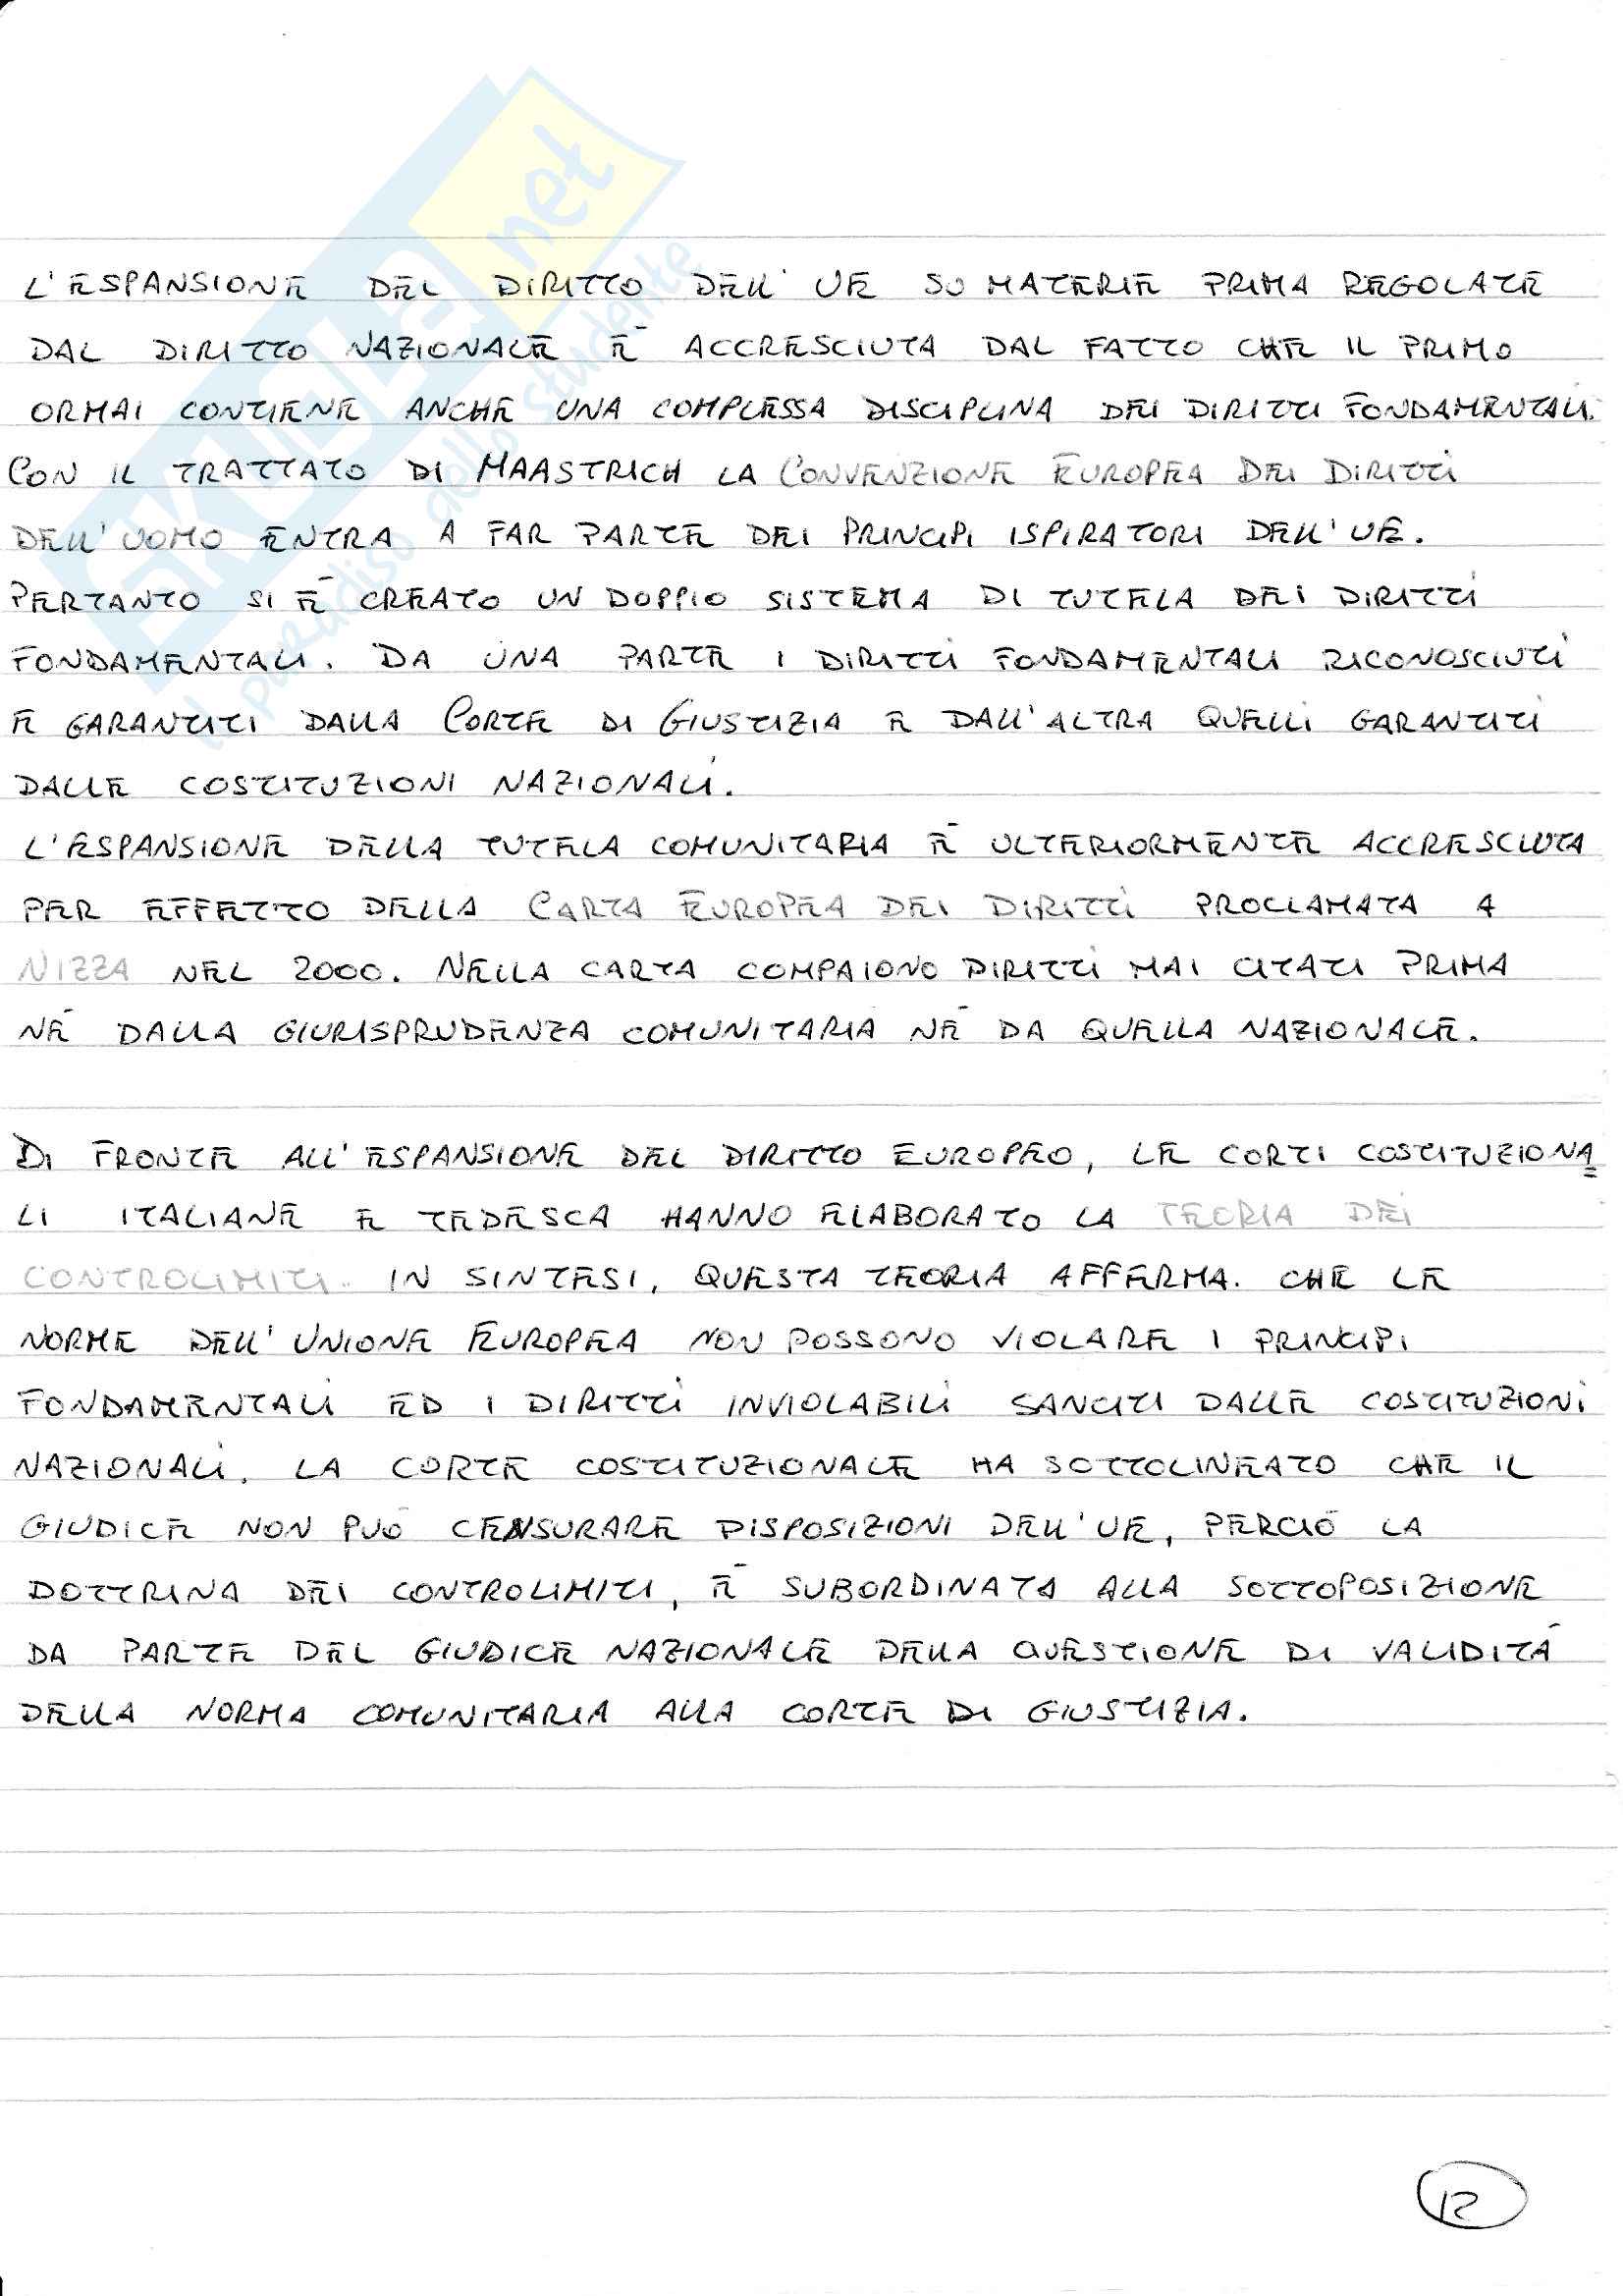 SKUOLA.net
il paradiso dello studente
L'ESPANSIONE DEL DIRITTO DELL'UE SU MATERIE PRIMA REGOLATE
DAL DIRITTO NAZIONALE È ACCRESCIUTA DAL FATTO CHE IL PRIMO
ORMAI CONTIENE ANCHE UNA COMPLESSA DISCIPLINA DEI DIRITTI FONDAMENTALI.
CON IL TRATTATO DI MAASTRICH LA CONVENZIONE EUROPEA DEI DIRITTI
DELL'UOMO ENTRA A FAR PARTE DEI PRINCIPI ISPIRATORI DELL'UE.
PERTANTO SI È CREATO UN DOPPIO SISTEMA DI TUTELA DEI DIRITTI
FONDAMENTALI. DA UNA PARTE I DIRITTI FONDAMENTALI RICONOSCIUTI
E GARANTITI DALLA CORTE DI GIUSTIZIA E DALL'ALTRA QUELLI GARANTITI
DALLE COSTITUZIONI NAZIONALI.
L'ESPANSIONE DELLA TUTELA COMUNITARIA È ULTERIORMENTE ACCRESCIUTA
PER EFFETTO DELLA CARTA EUROPEA DEI DIRITTI PROCLAMATA A
NIZZA NEL 2000. NELLA CARTA COMPAIONO DIRITTI MAI CITATI PRIMA
NÉ DALLA GIURISPRUDENZA COMUNITARIA NÉ DA QUELLA NAZIONALE.
DI FRONTE ALL'ESPANSIONE DEL DIRITTO EUROPEO, LE CORTI COSTITUZIONA
LI ITALIANE E TEDESCA HANNO ELABORATO LA TEORIA DEI
CONTROLIMITI. IN SINTESI, QUESTA TEORIA AFFERMA. CHE LE
NORME DELL'UNIONE EUROPEA NON POSSONO VIOLARE I PRINCIPI
FONDAMENTALI ED I DIRITTI INVIOLABILI SANCITI DALLE COSTITUZIONI
NAZIONALI. LA CORTE COSTITUZIONALE HA SOTTOLINEATO CHE IL
GIUDICE NON PUÒ CENSURARE DISPOSIZIONI DELL'UE, PERCIÒ LA
DOTTRINA DEI CONTROLIMITI, È SUBORDINATA ALLA SOTTOPOSIZIONE
DA PARTE DEL GIUDICE NAZIONALE DELLA QUESTIONE DI VALIDITÀ
DELLA NORMA COMUNITARIA ALLA CORTE DI GIUSTIZIA.
12